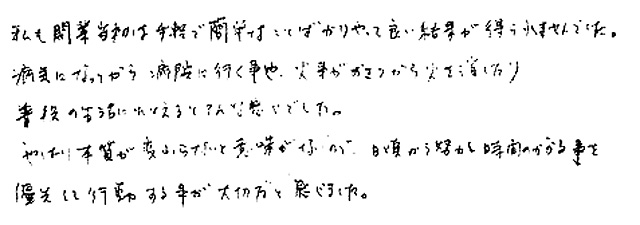 私も開業当初は手軽で簡単なことばかりやって良い結果が得られませんでした。
病気になってから病院に行く事や、火事がおきてから火を消したり
普段の生活にたとえるとそんな感じでした。
やはり本質が変わらないと意味がないので、日頃から努力と時間のかかる事を
優先して行動する事が大切だと感じました。